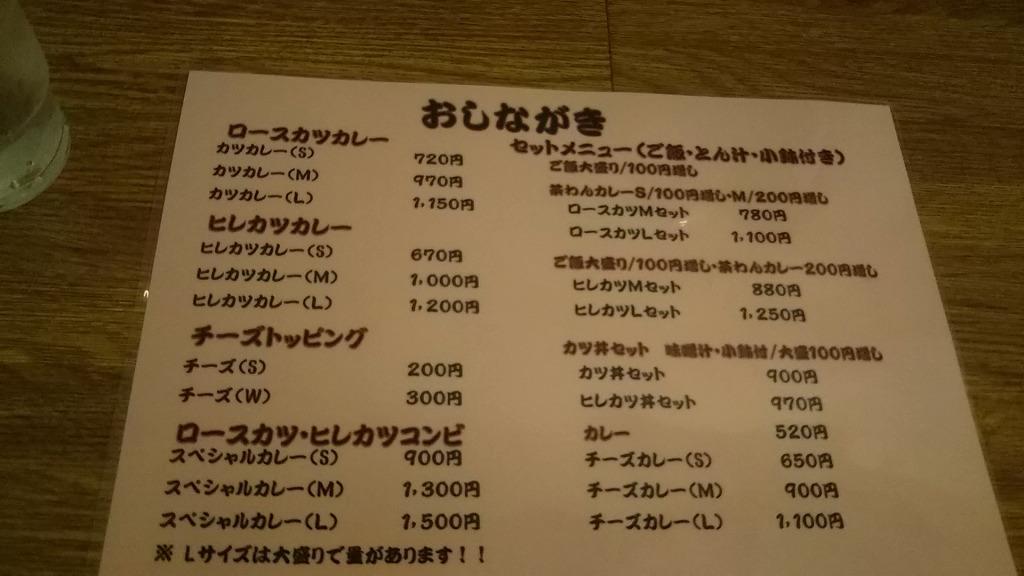 おしながき
ロースカツカレー
カツカレー(S) 720円
カツカレー(M) 970円
カツカレー(L) 1,150円
ヒレカツカレー
ヒレカツカレー(S) 670円
ヒレカツカレー(M) 1,000円
ヒレカツカレー(L) 1,200円
チーズトッピング
チーズ(S) 200円
チーズ(W) 300円
ロースカツ・ヒレカツコンビ
スペシャルカレー(S) 900円
スペシャルカレー(M) 1,300円
スペシャルカレー(L) 1,500円
※ Lサイズは大盛りで量があります!!
セットメニュー(ご飯・とん汁・小鉢付き)
ご飯大盛り/100円増し
茶わんカレーS/100円増し・M/200円増し
ロースカツMセット 780円
ロースカツLセット 1,100円
ご飯大盛り/100円増し・茶わんカレー200円増し
ヒレカツMセット 880円
ヒレカツLセット 1,250円
カツ丼セット 味噌汁・小鉢付/大盛100円増し
カツ丼セット 900円
ヒレカツ丼セット 970円
カレー 520円
チーズカレー(S) 650円
チーズカレー(M) 900円
チーズカレー(L) 1,100円